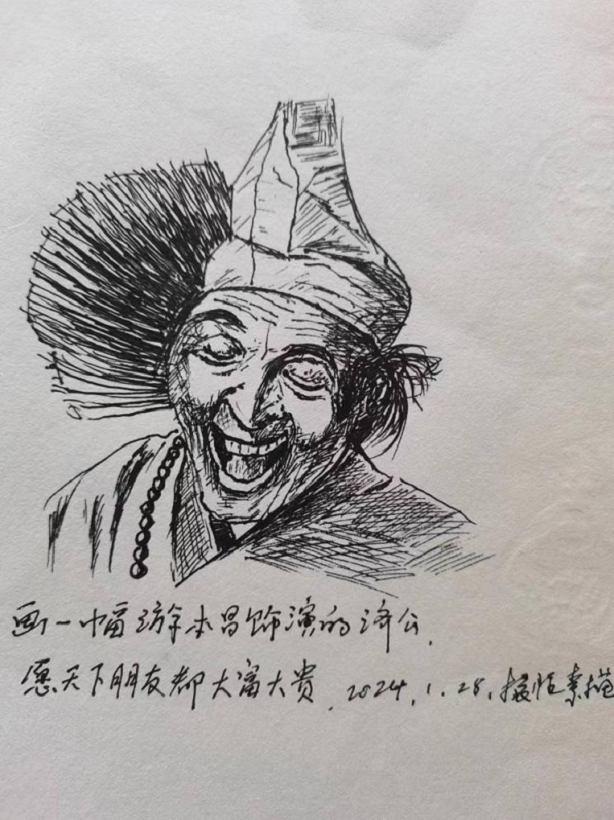 画一幅游本昌饰演的济公.
愿天下朋友都大富大贵. 2024.1.28. 素描